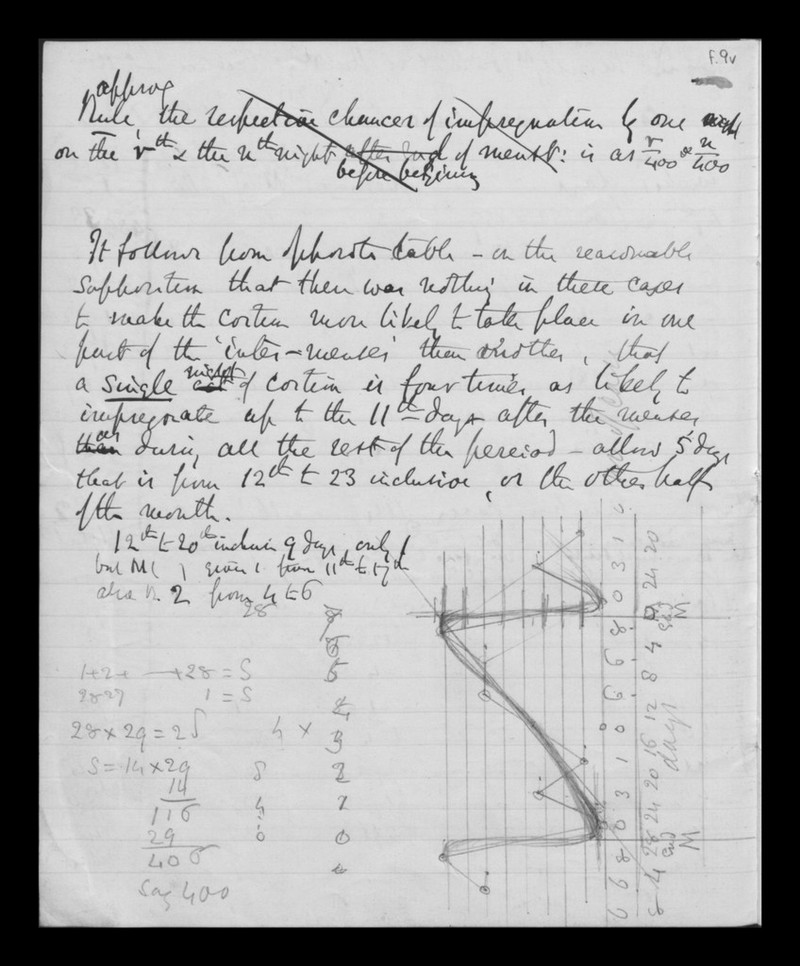 F.9v
approx
Rule, the respective chances of impregnation by one night
on the rth & the nth night after end of menst: is as r/400 & n/400
before beginning
It follows from opposite table – on the reasonable
supposition that there was nothing in these cases
to make the coition more likely to take place in one
part of the 'inter-menses' than another, that
a single act night of coition is four times as likely to
impregnate up to the 11th day after the menses
than as during all the rest of the period – allow 5 days
that is from 12th to 23 inclusive, or the other half
of the month.
12th to 20th inclusive 9 days, only 1
but given 1 from 11th to 17th
also 2 from 4 to 6
28
1+2+ —+28 = S
28 27 1 = S
28 × 29 = 2S
S = 14 × 29
14
116
29
406
say 400
4 ×
8
4
0
8
6
5
4
3
2
1
0
0 1 3 0 8 6 6 0 1 3 0 8 6
20 24 end 4 8 12 16 20 24 28 end 4 8
M
days
M